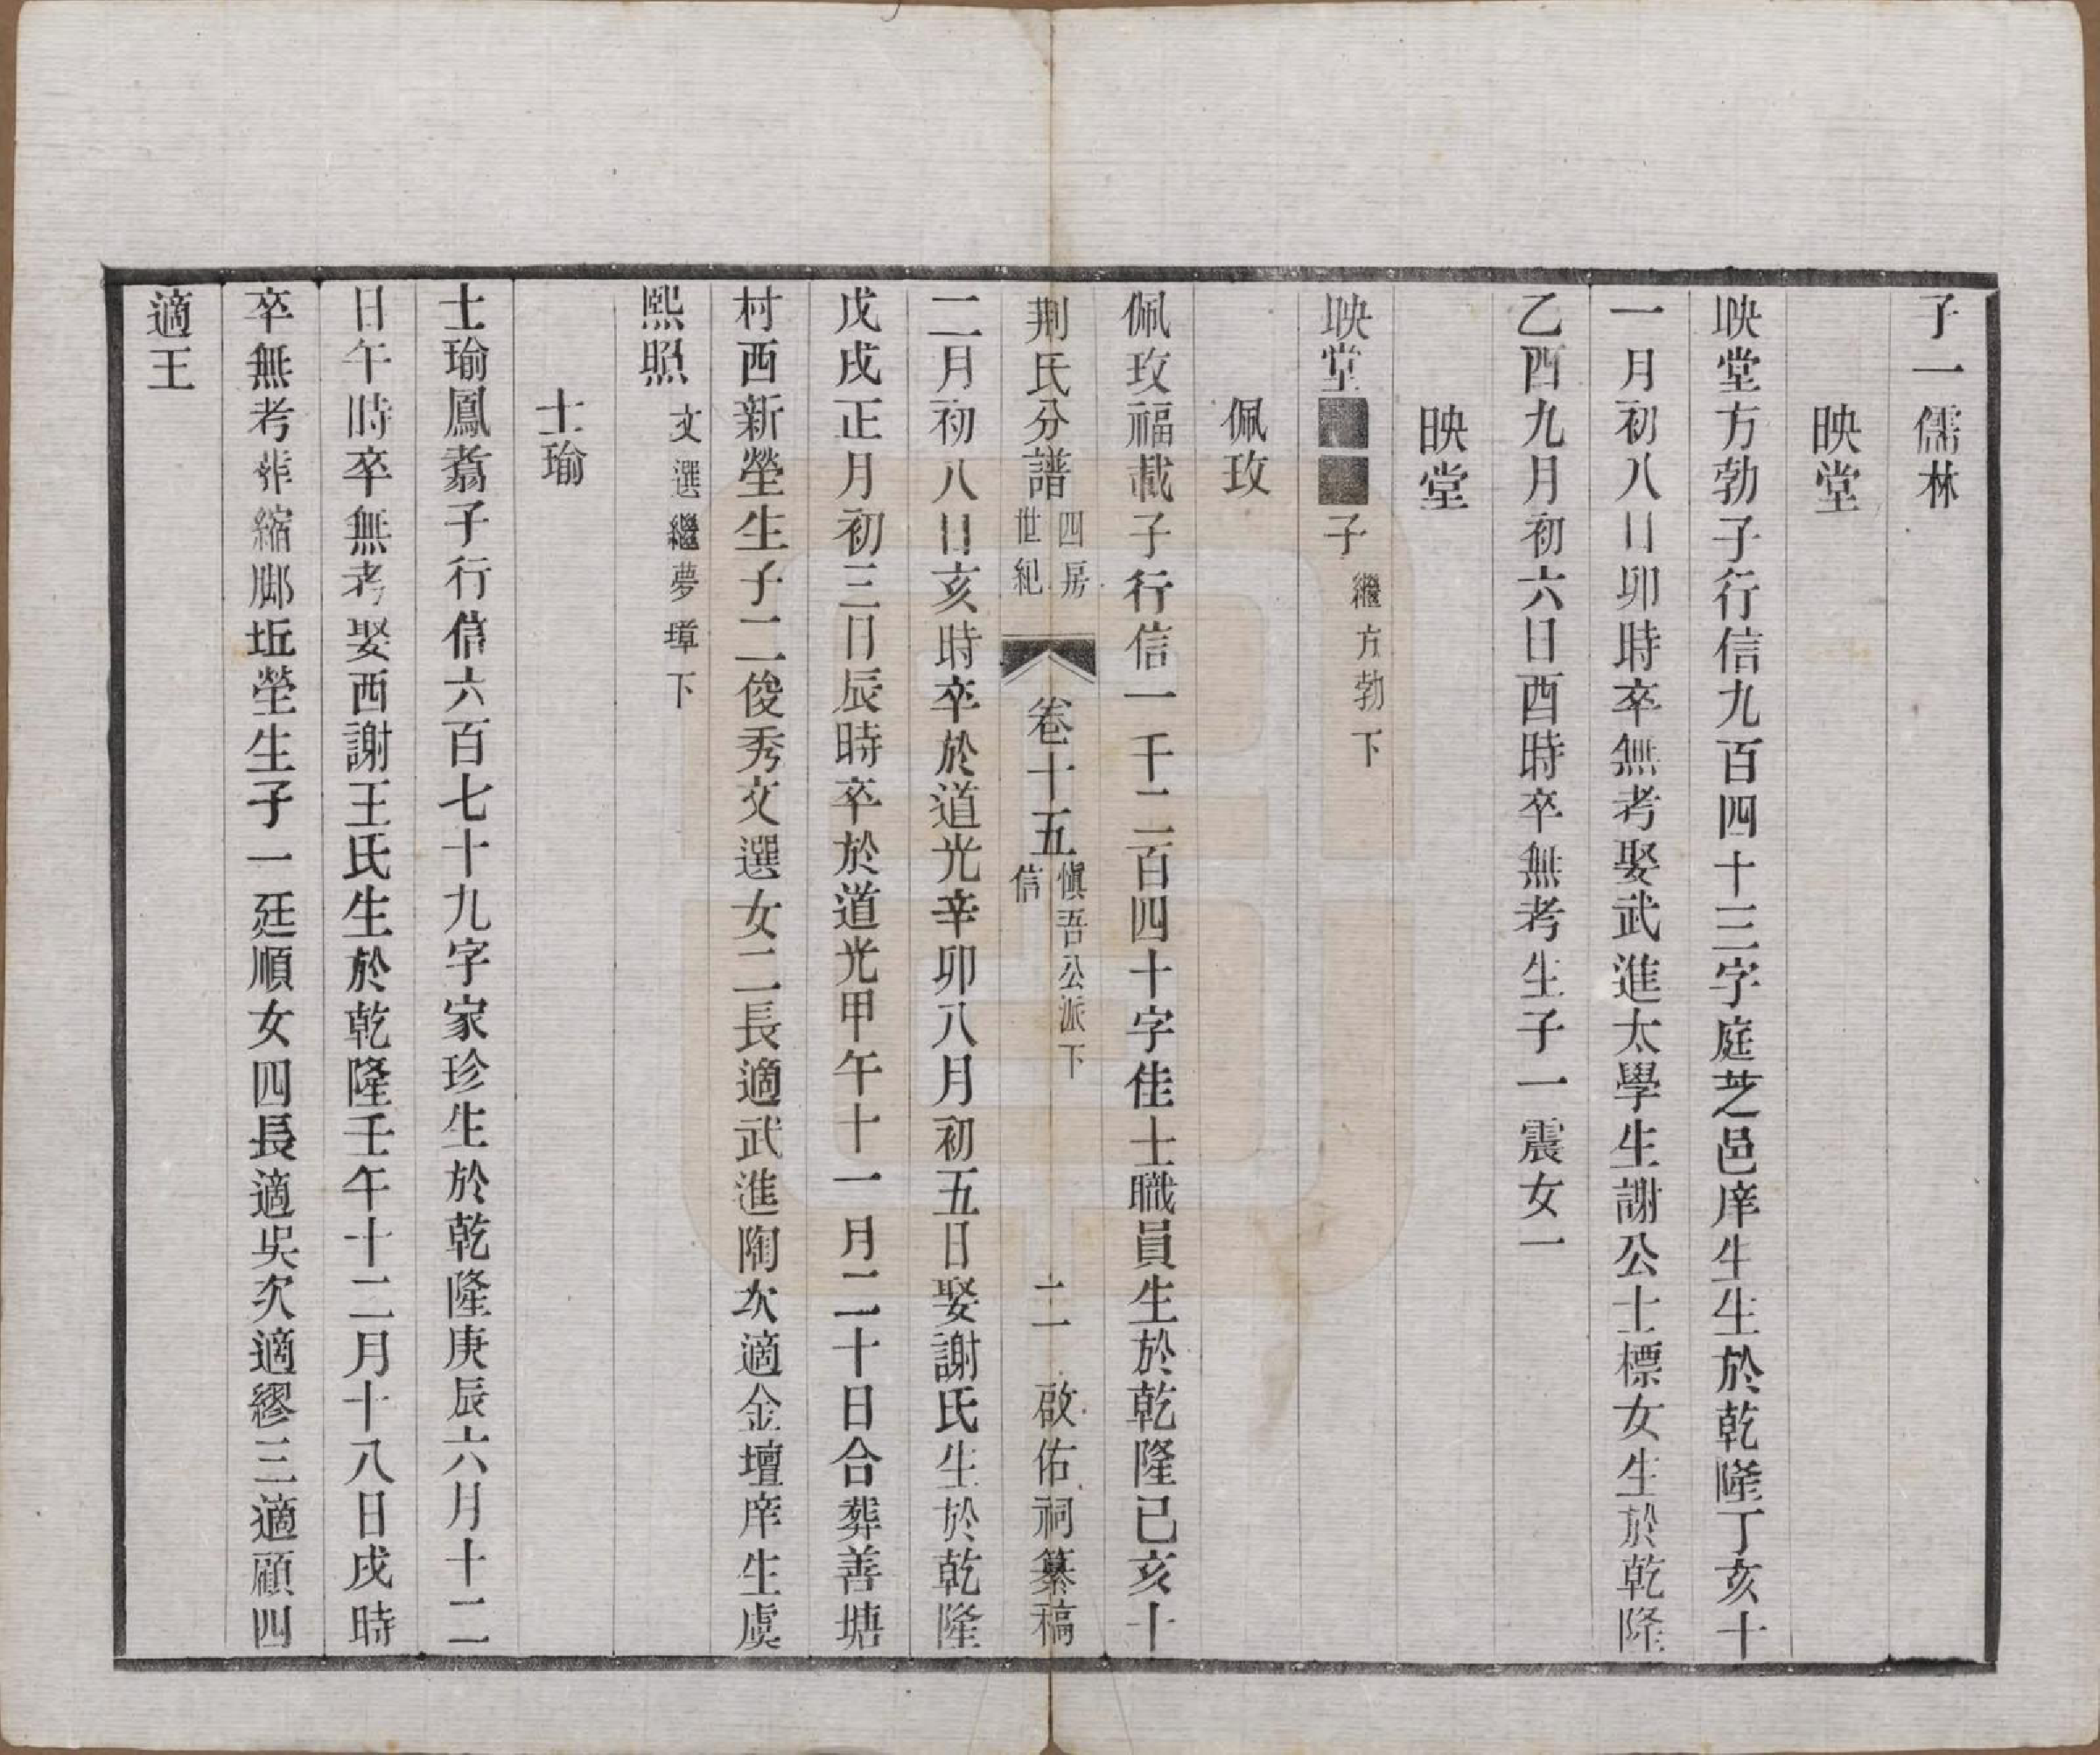 子一儒林
映堂
映堂方勃子行信九百四十三字庭芝邑庠生生於乾隆丁亥十
一月初八日卯時卒無考娶武進太學生謝公士標女生於乾隆
乙酉九月初六日酉時卒無考生子一震女一
映堂
映堂■■子繼方勃下
佩玫
佩玫福載子行信一千二百四十字佳士職員生於乾隆己亥十
荆氏分譜四房世紀 卷十五慎吾公派下信 二 啟佑祠纂稿
二月初八日亥時卒於道光辛卯八月初五日娶謝氏生於乾隆
戊戌正月初三日辰時卒於道光甲午十一月二十日合葬善塘
村西新塋生子二俊秀文選女二長適武進陶次適金壇庠生虞
熙照文選繼夢墇下
士瑜
士瑜鳳翥子行信六百七十九字家珍生於乾隆庚辰六月十二
日午時卒無考娶西謝王氏生於乾隆壬午十二月十八日戌時
卒無考葬縮腳坵塋生子一廷順女四長適吳次適繆三適顧四
適王